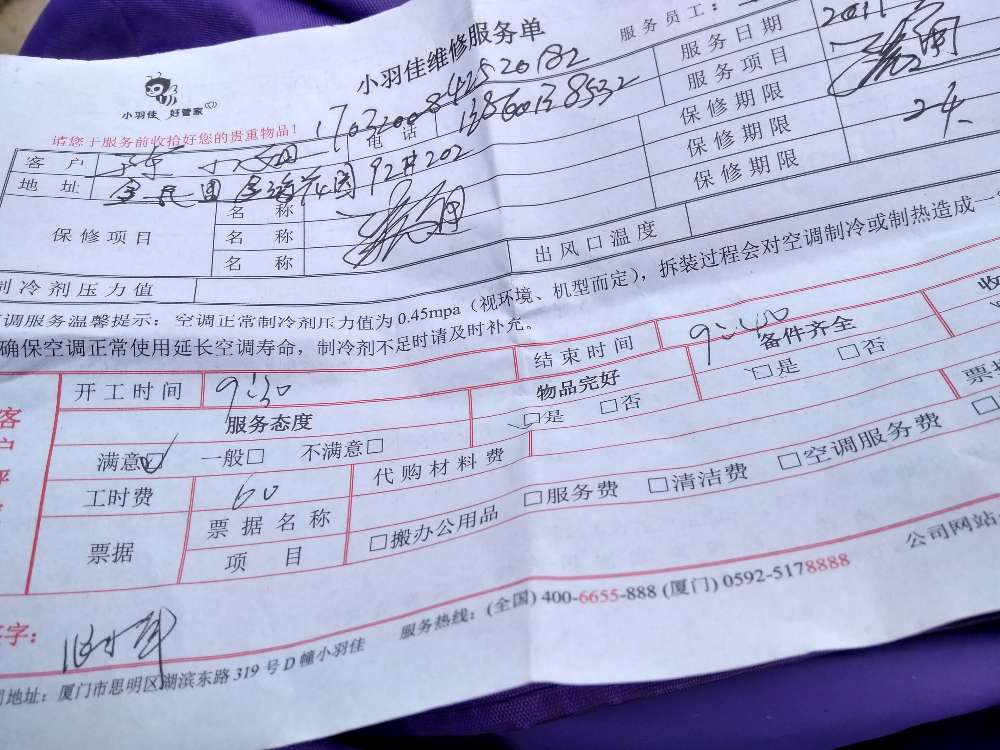 小羽佳维修服务单
服务员工:
小羽佳 好管家
请您于服务前收拾好您的贵重物品!
17032008425 20182
服务日期
客户
电话 13860138532
服务项目
地址 花园92#202
保修期限
保修项目
名称
保修期限
名称
保修期限
名称
出风口温度
制冷剂压力值
调服务温馨提示:空调正常制冷剂压力值为0.45mpa(视环境、机型而定),拆装过程会对空调制冷或制热造成一
确保空调正常使用延长空调寿命,制冷剂不足时请及时补充。
开工时间 9:30
结束时间 9:40
服务态度
物品完好
备件齐全
满意□ 一般□ 不满意□
□是 □否
□是 □否
工时费 60
代购材料费
票据
票据名称
项目
□搬办公用品 □服务费 □清洁费 □空调服务费 □
签字:
地址:厦门市思明区湖滨东路319号D幢小羽佳
服务热线:(全国)400-6655-888(厦门)0592-5178888
公司网站: